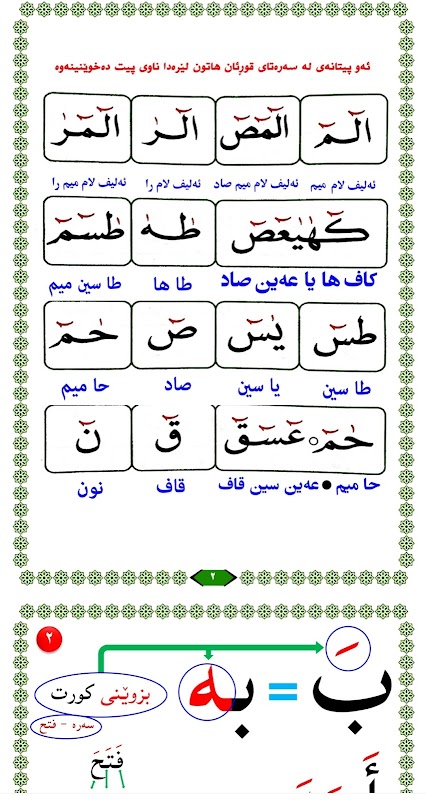 ئەو پیتانەی لە سەرەتای قورئان هاتون لێرەدا ناوی پیت دەخوێنینەوە
الٓمٓ الٓمٓصٓ الٓرٰ الٓمٓرٰ
ئەلیف لام میم ئەلیف لام میم صاد ئەلیف لام را ئەلیف لام میم را
كٓهٰيٰعٓصٓ طٰهٰ طٰسٓمٓ
کاف ها یا عەین صاد طا ها طا سین میم
طٰسٓ يٰسٓ صٓ حٰمٓ
طا سین یا سین صاد حا میم
حٰمٓ ○ عٓسٓقٓ قٓ نٓ
حا میم ● عەین سین قاف قاف نون
٢
٢
بَ = بە
بزوێنی کورت
سەرە - فتح
فَتَحَ